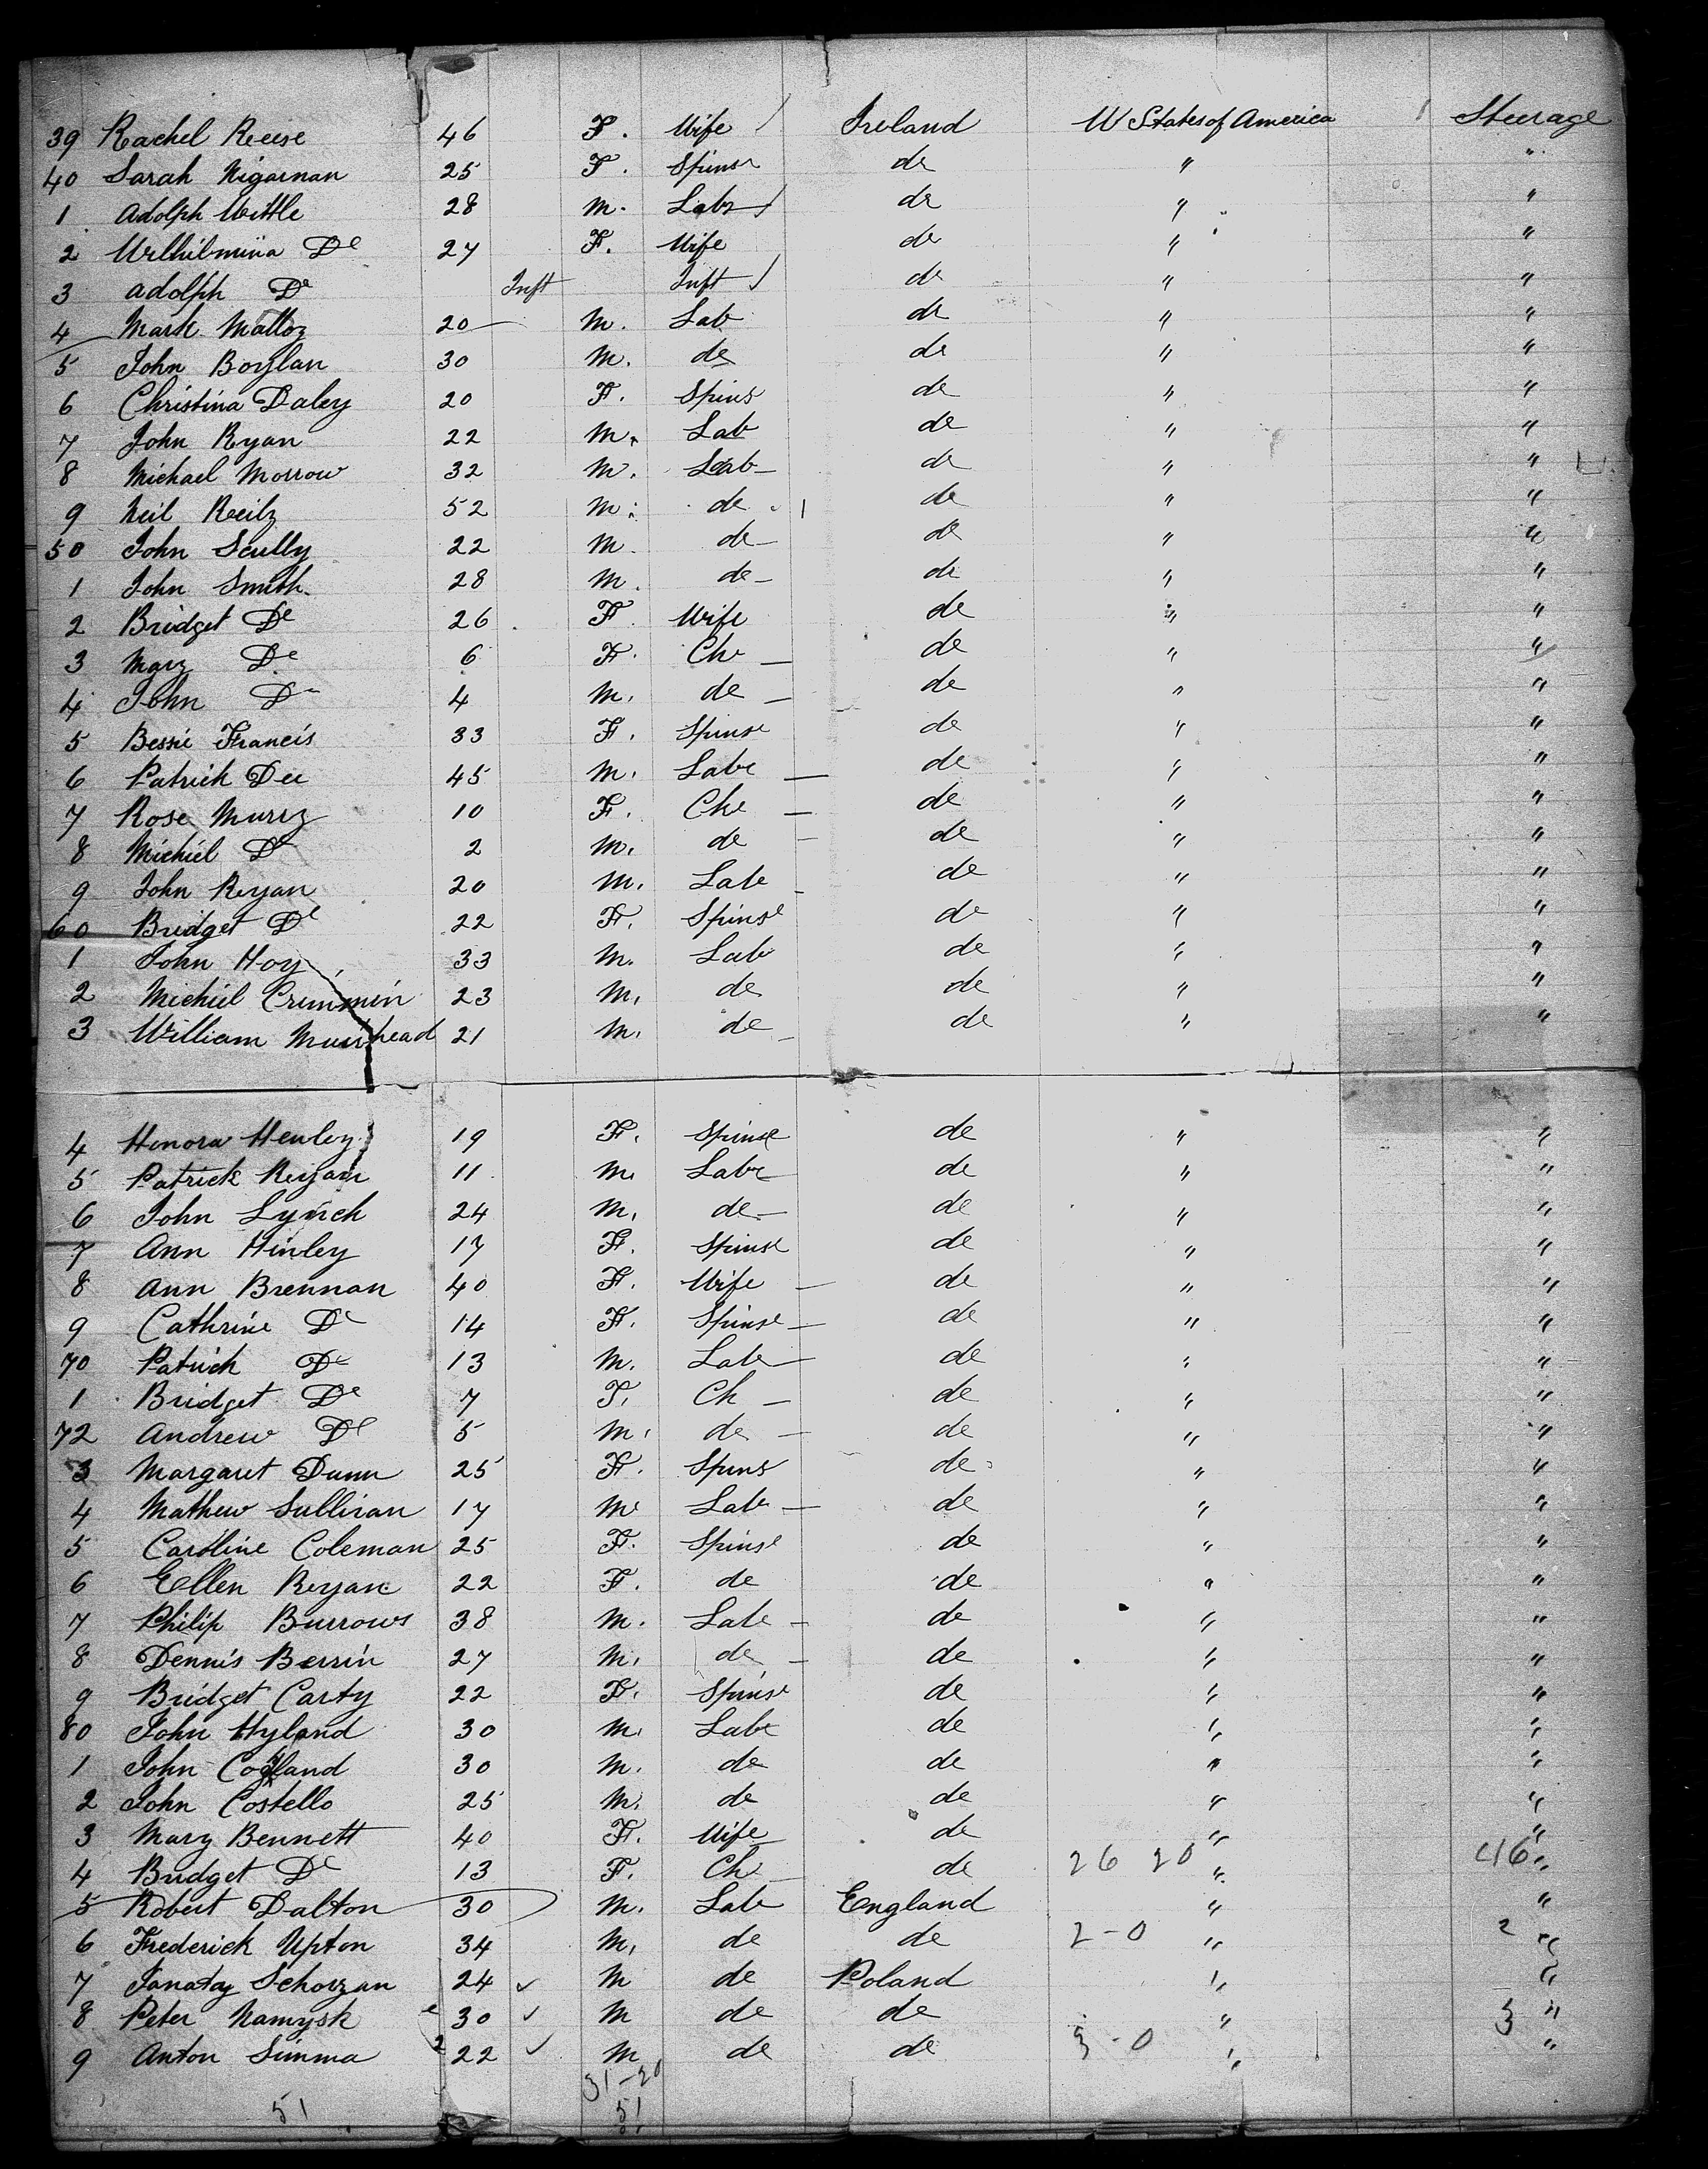 39 Rachel Reese 46 F. Wife Ireland U States of America Steerage
40 Sarah Kigarnan 25 F. Spinsr de " "
1 Adolph Wittle 28 M. Labr de " "
2 Wilhilmina De 27 F. Wife de " "
3 Adolph De Inft Inft de " "
4 Mark Malloy 20 M. Lab de " "
5 John Boylan 30 M. de de " "
6 Christina Daley 20 F. Spins de " "
7 John Ryan 22 M. Lab de " "
8 Michael Morrow 32 M. Lab de " "
9 Neil Reily 52 M. de de " "
50 John Scully 22 M. de de " "
1 John Smith 28 M. de de " "
2 Bridget De 26 F. Wife de " "
3 Mary De 6 F. Ch de " "
4 John De 4 M. de de " "
5 Bessie Francis 33 F. Spinse de " "
6 Patrick Dee 45 M. Labe de " "
7 Rose Murry 10 F. Che de " "
8 Michiel De 2 M. de de " "
9 John Ryan 20 M. Labe de " "
60 Bridget De 22 F. Spinse de " "
1 John Hoy 33 M. Lab de " "
2 Michiel Crimmin 23 M. de de " "
3 William Muirhead 21 M. de de " "
4 Honora Henley 19 F. Spinse de " "
5 Patrick Reyan 11 M. Labe de " "
6 John Lynch 24 M. de de " "
7 Ann Hinley 17 F. Spinse de " "
8 Ann Brennan 40 F. Wife de " "
9 Cathrine De 14 F. Spinse de " "
70 Patrick De 13 M. Labe de " "
1 Bridget De 7 F. Ch de " "
72 Andrew De 5 M. de de " "
3 Margaret Dunn 25 F. Spins de " "
4 Mathew Sullivan 17 M Labe de " "
5 Caroline Coleman 25 F. Spinse de " "
6 Ellen Reyan 22 F. de de " "
7 Philip Burrows 38 M. Labe de " "
8 Dennis Berrin 27 M. de de " "
9 Bridget Carty 22 F. Spinse de " "
80 John Hyland 30 M. Labe de " "
1 John 30 M. de de " "
2 John Costello 25 M. de de " "
3 Mary Bennett 40 F. Wife de " "
4 Bridget De 13 F. Ch de 26 20 " 46 "
5 Robert Dalton 30 M. Labe England " "
6 Frederick Upton 34 M. de de 2-0 " 2 "
7 Schorzan 24 M de Poland " "
8 Peter Namysk 30 M de de " 3 "
9 Anton Simma 22 M de de 3-0 " "
31-20
51 51